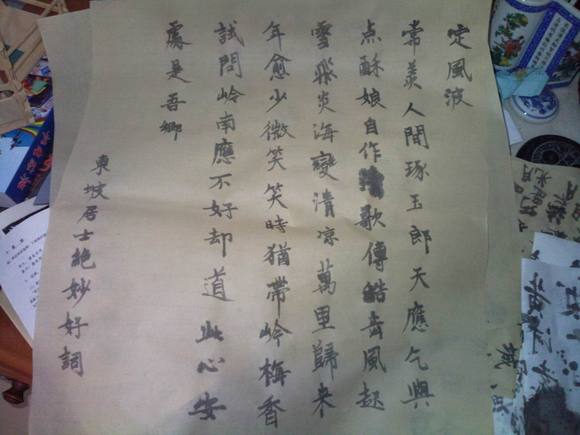 定風波
常羨人間琢玉郎天應乞與
点酥娘自作清歌傳皓齿風起
雪飛炎海變清凉萬里歸来
年愈少微笑笑時猶帶岭梅香
試問岭南應不好却道此心安
處是吾鄉
東坡居士絶妙好詞